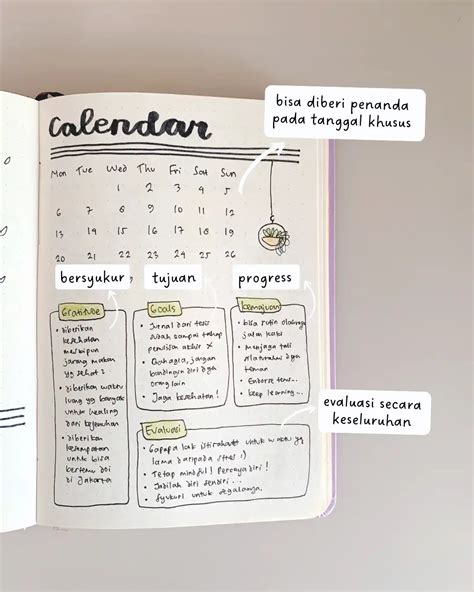 bisa diberi penanda
pada tanggal khusus
Calendar
Mon Tue Wed Thu Fri Sat Sun
1 2 3 4 5
6 7 8 9 10 11 12
13 14 15 16 17 18 19
20 21 22 23 24 25 26
bersyukur
tujuan
progress
Gratitude
• diberikan
kesehatan
meskipun
jarang makan
yg sehat
• diberikan waktu
luang yg banyak
untuk healing
dari kejenuhan
• diberikan
kesempatan
untuk bisa
bertemu doi
di Jakarta
Goals
• Jurnal dari tesis
sudah sampai tahap
penulisan akhir
• Bahagia, jangan
bandingin diri dgn
orang lain
• Jaga kesehatan!
Kemajuan
• bisa rutin olahraga
jalan kaki
• Menjaga tali
silaturahmi dgn
teman
• Endorse terus...
• keep learning...
evaluasi secara
keseluruhan
Evaluasi
• Gapapa kok istirahat untuk waktu yg
lama daripada stres :)
• Tetap mindful! Percaya diri!
• Jadilah diri sendiri...
• Syukuri untuk segalanya.